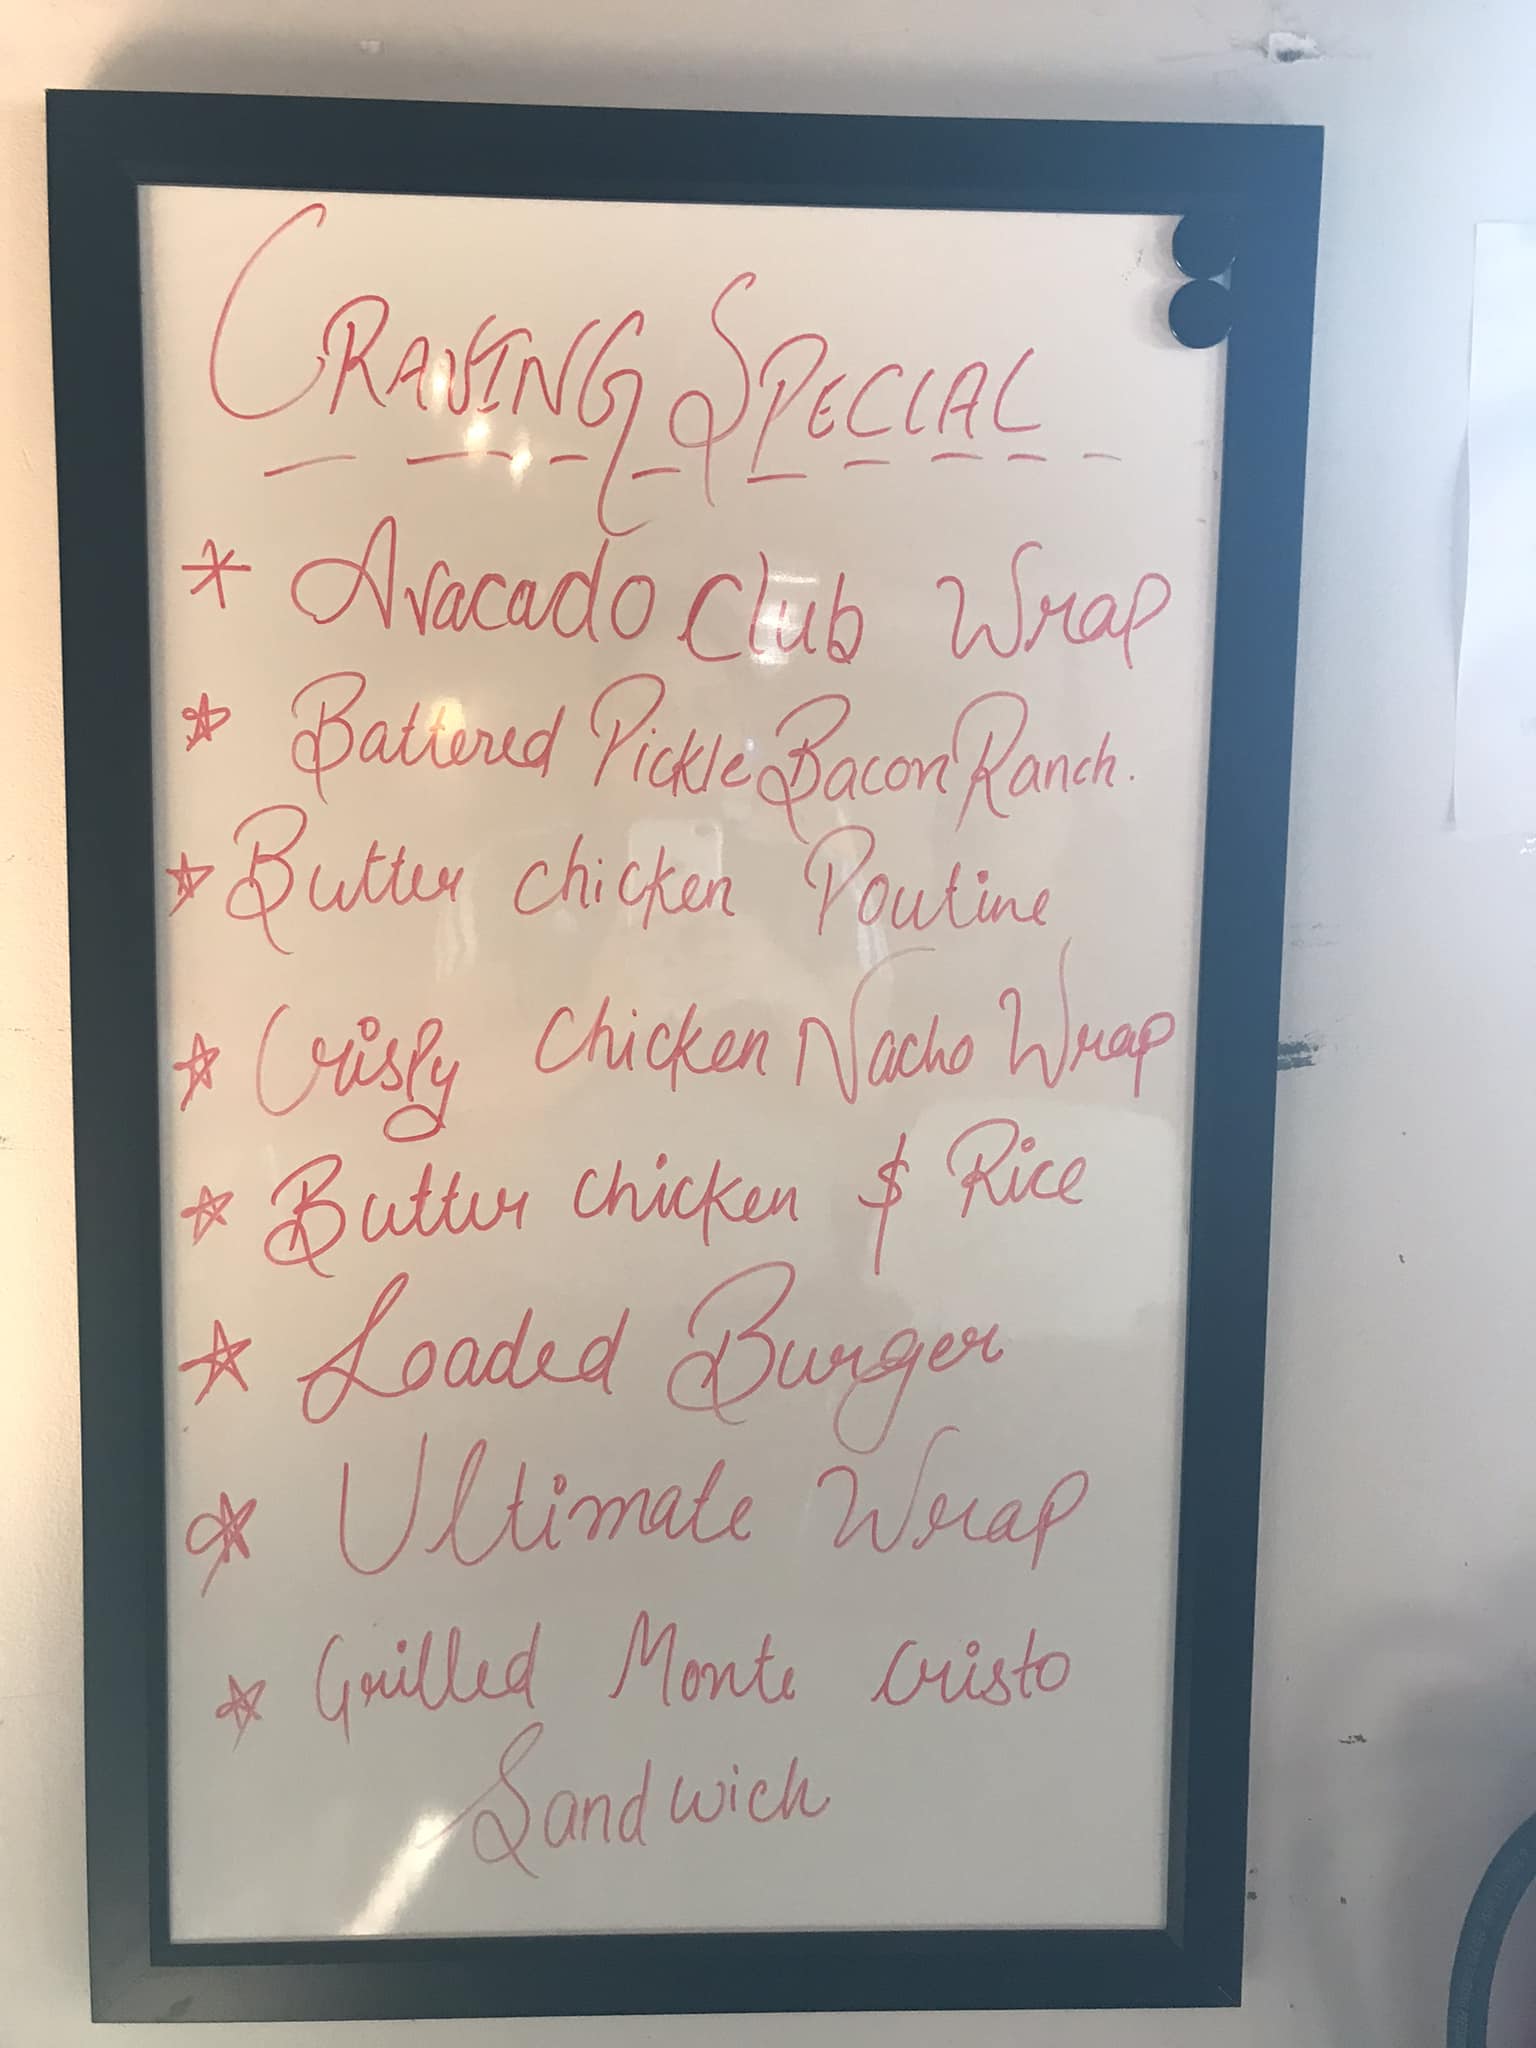 CRAVING SPECIAL
* Avacado Club Wrap
☆ Battered Pickle Bacon Ranch.
☆ Butter chicken Poutine
☆ Crispy Chicken Nacho Wrap
☆ Butter chicken $ Rice
☆ Loaded Burger
☆ Ultimate Wrap
☆ Grilled Monte Cristo
Sandwich